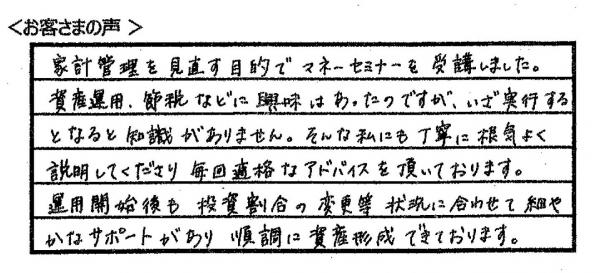 ＜お客さまの声＞
家計管理を見直す目的でマネーセミナーを受講しました。
資産運用、節税などに興味はあったのですが、いざ実行する
となると知識がありません。そんな私にも丁寧に根気よく
説明してくださり毎回適格なアドバイスを頂いております。
運用開始後も投資割合の変更等状況に合わせて細や
かなサポートがあり順調に資産形成できております。